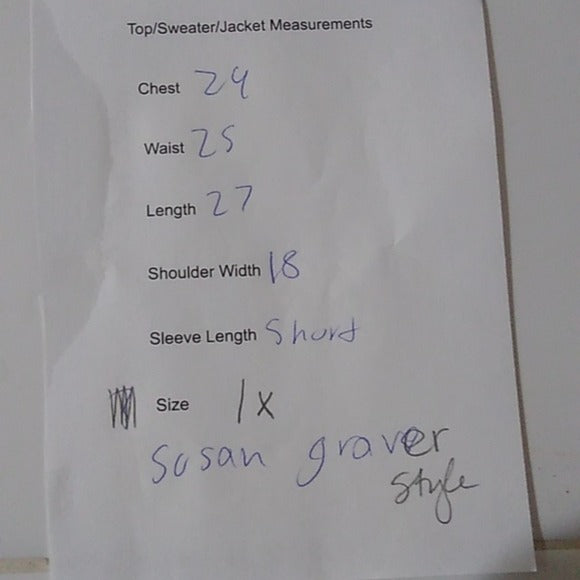 Top/Sweater/Jacket Measurements
Chest 24
Waist 25
Length 27
Shoulder Width 18
Sleeve Length Short
Size 1x
Susan graver
Style